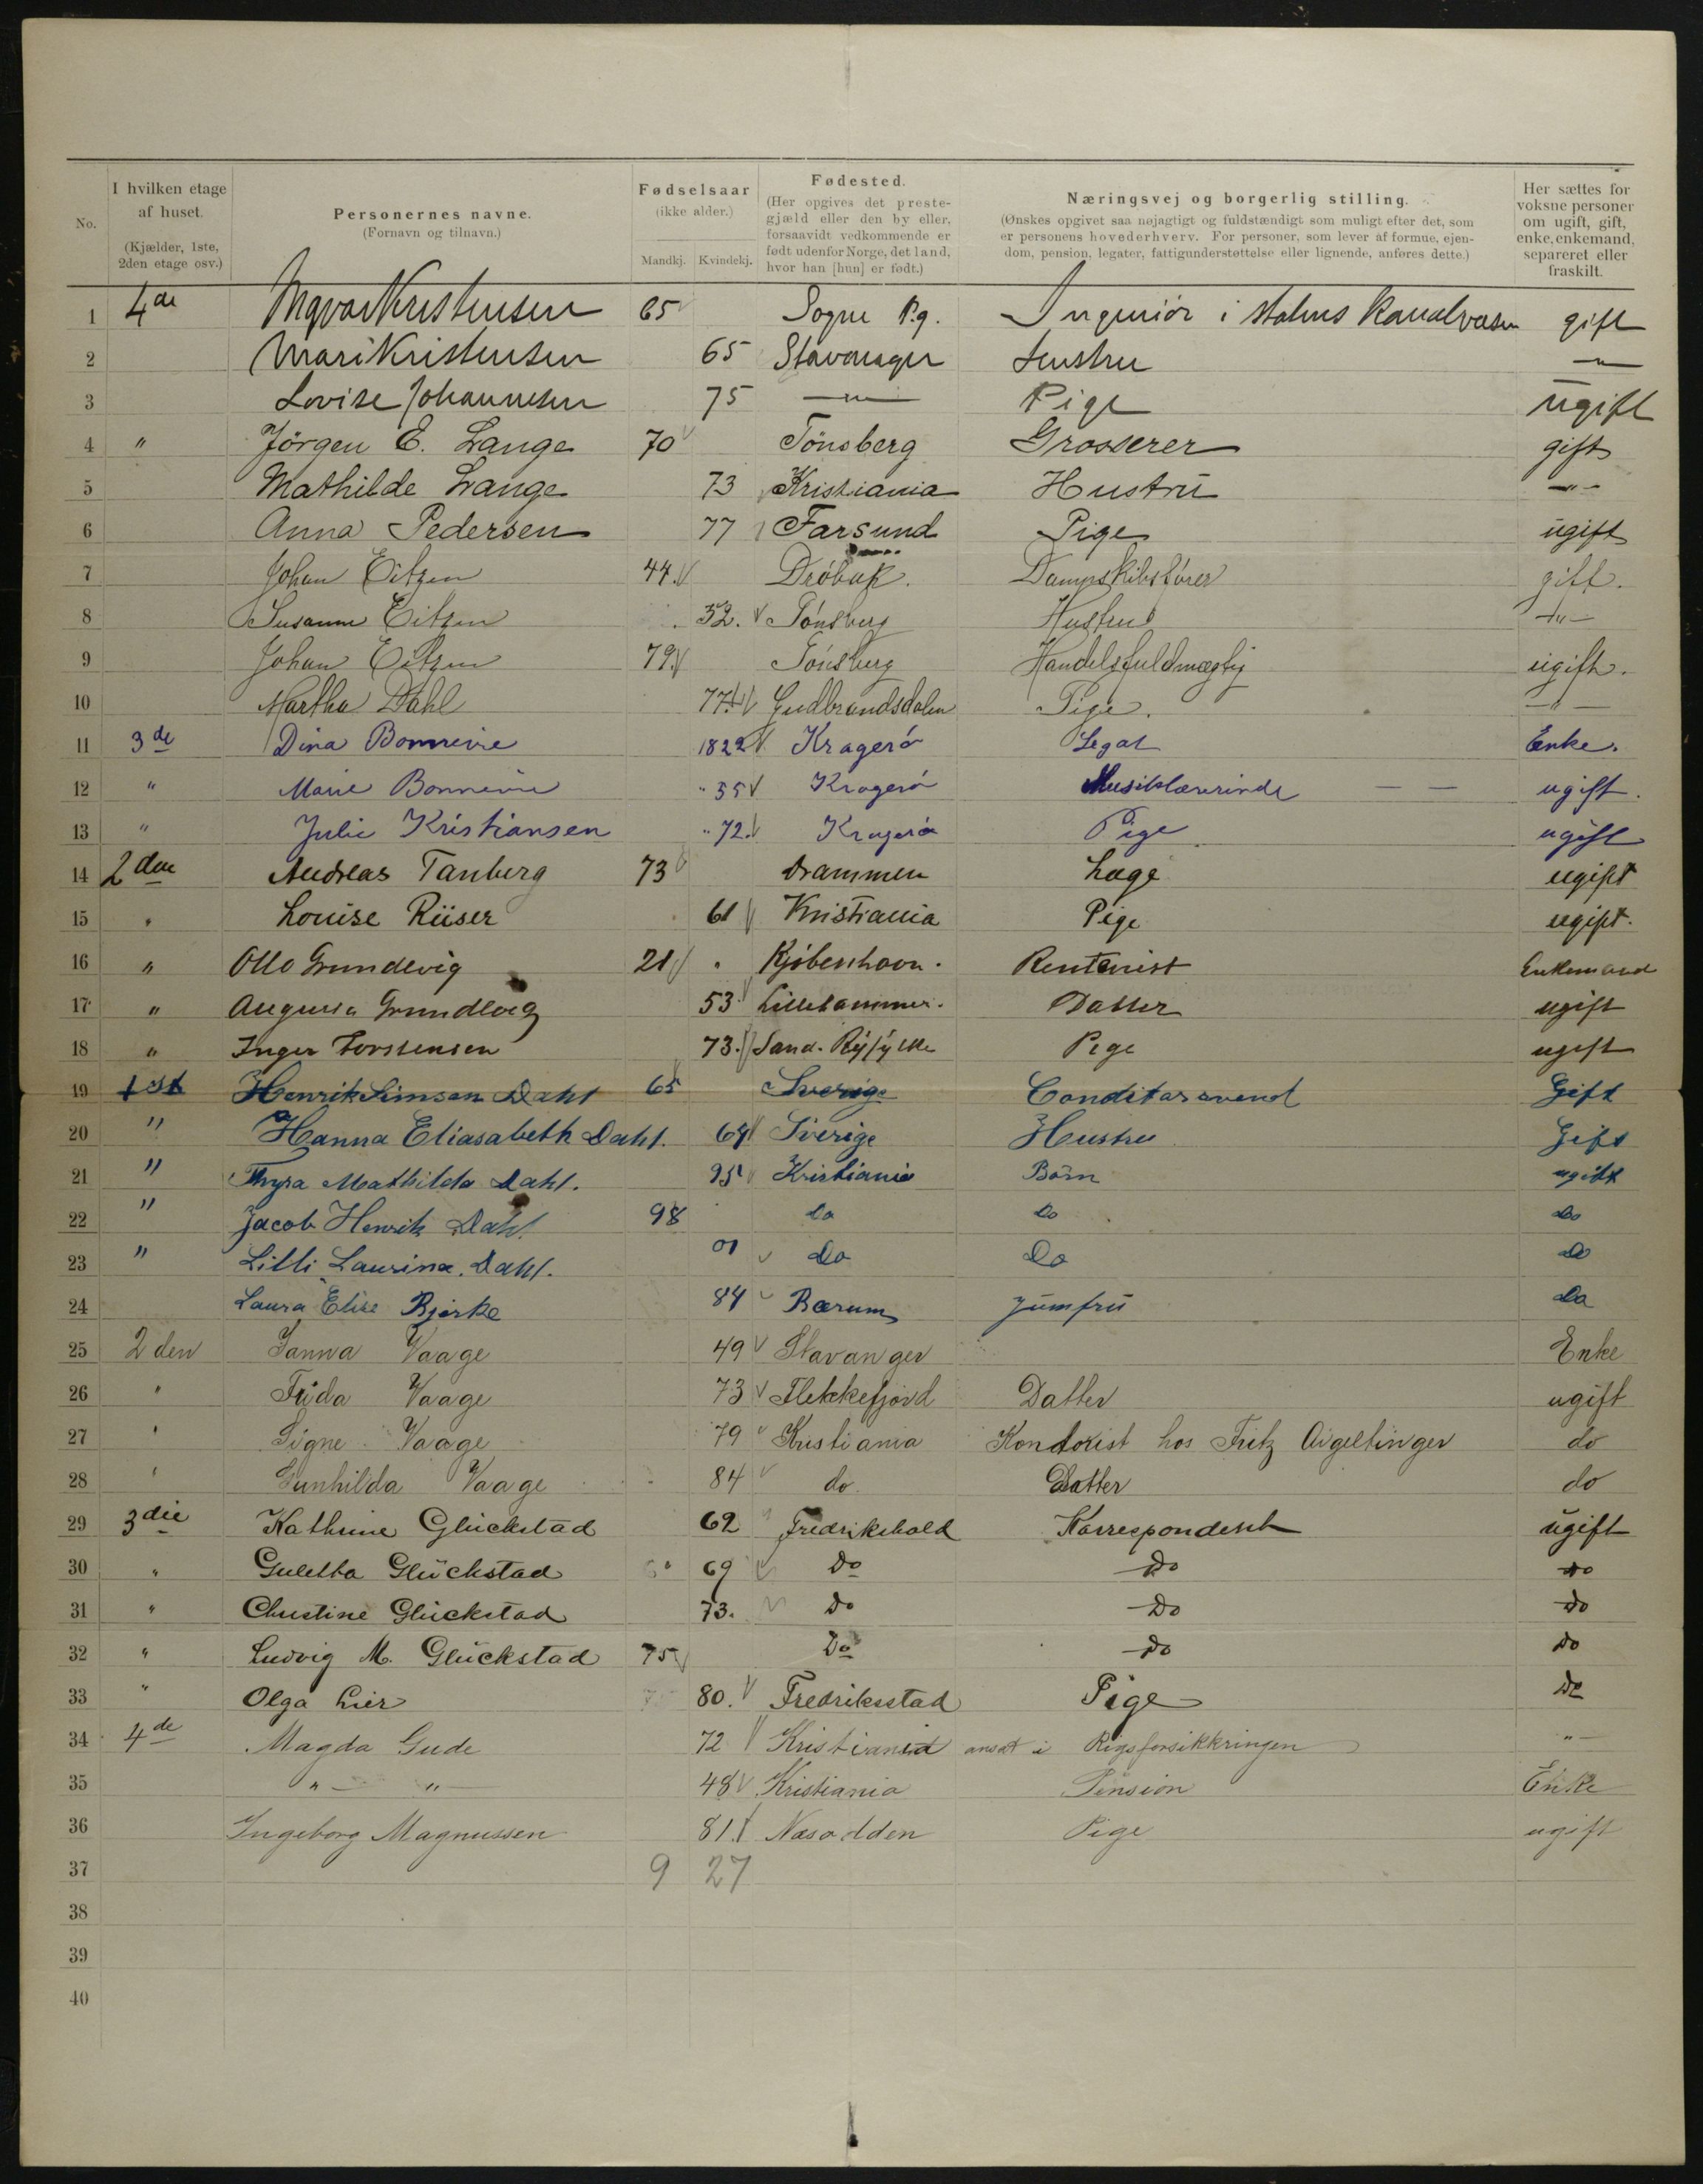 No.
I hvilken etage af huset.
(Kjælder, 1ste, 2den etage osv.)
Personernes navne.
(Fornavn og tilnavn.)
Fødselsaar
(ikke alder.)
Mandkj. Kvindekj.
Fødested.
(Her opgives det prestegjæld eller den by eller, forsaavidt vedkommende er født udenfor Norge, det land, hvor han [hun] er født.)
Næringsvej og borgerlig stilling.
(Ønskes opgivet saa nøjagtigt og fuldstændigt som muligt efter det, som er personens hovederhverv. For personer, som lever af formue, ejendom, pension, legater, fattigunderstøttelse eller lignende, anføres dette.)
Her sættes for voksne personer om ugift, gift, enke, enkemand, separeret eller fraskilt.
1 4de Ingvar Kristensen 65 Sogne P.g. Ingeniör i statens Kanalvæsen gift
2 Mari Kristensen 65 Stavanger Hustru —"—
3 Lovise Johannesen 75 —"— Pige ugift
4 " Jörgen E. Lange 70 Tönsberg Grosserer gift
5 Mathilde Lange 73 Kristiania Hustru —"—
6 Anna Pedersen 77 Farsund Pige ugift
7 Johan Eitzen 44. Dröbak. Dampskibsförer gift.
8 Susanne Eitzen 52. Tönsberg Hustru —"—
9 Johan Eitzen 79. Tönsberg Handelsfuldmægtig ugift.
10 Martha Dahl 77. Gudbrandsdalen Pige. —"—
11 3de Dina Bonnevie 1822 Kragerö Legat Enke.
12 " Marie Bonnevie " 55 Kragerö Musiklærerinde — — ugift.
13 " Julie Kristiansen " 72. Kragerö Pige ugift
14 2den Andreas Tanberg 73 Drammen Læge ugift
15 " Louise Riiser 61 Kristiania Pige ugift.
16 " Otto Grundtvig 21 " Kjöbenhavn. Rentenist Enkemand
17 " Augusta Grundtvig 53 Lillehammer. Datter ugift
18 " Inger Torstensen 73. Sand. Ryfylke Pige ugift
19 1st Henrik Simsen Dahl 65 Sverige Conditorsvend Gift
20 " Hanna Eliasabeth Dahl. 64 Sverige Hustru Gift
21 " Thyra Mathilda Dahl. 95 Kristiania Börn ugift
22 " Jacob Henrik Dahl. 98 do Do Do
23 " Lilli Laurina. Dahl. 01 Do Do Do
24 Laura Elise Bjerke 84 Bærum Jumfru Do
25 2den Janna Vaage 49 Stavanger Enke
26 " Frida Vaage 73 Flekkefjord Datter ugift
27 " Signe Vaage 79 Kristiania Kontorist hos Fritz Aigeltinger do
28 " Gunhilda Vaage 84 do. Datter do
29 3die Kathrine Glückstad 62 Fredrikshald Korrespondent ugift
30 " Guletta Glückstad 69 Do Do Do
31 " Christine Glückstad 73. Do Do Do
32 " Ludvig M. Glückstad 75 Do Do Do
33 " Olga Lier 80. Fredriksstad Pige Do
34 4de Magda Gude 72 Kristiania ansat i Rigsforsikkringen "—
35 "— "— 48 Kristiania Pension Enke
36 Ingeborg Magnussen 81. Næsodden Pige ugift
37 9 27
38
39
40